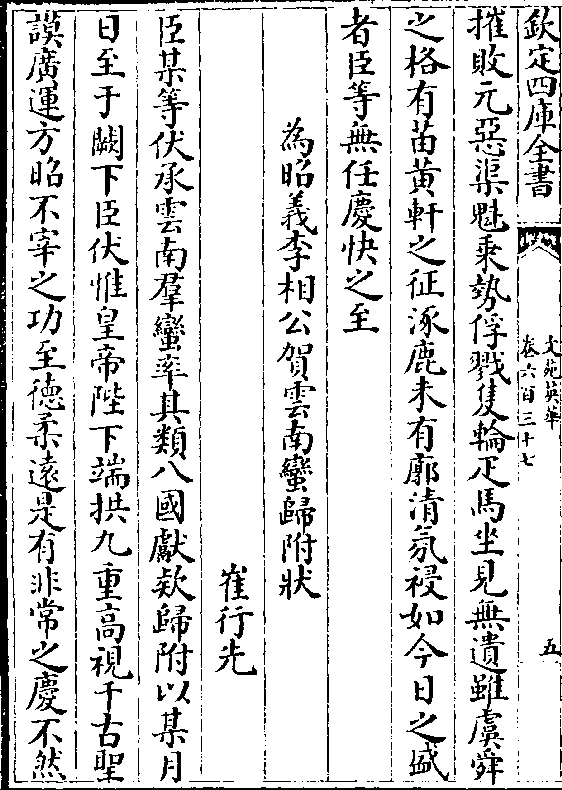 欽定四庫全書
文苑英華
卷六百三十七
五
摧敗元惡渠魁乗勢俘戮隻輪疋馬坐見無遺雖虞舜
之格有苗黄軒之征涿鹿未有廓清氛祲如今日之盛
者臣等無任慶快之至
為昭義李相公賀雲南蠻歸附狀
崔行先
臣某等伏承雲南羣蠻率其類八國獻欵歸附以某月
日至于闕下臣伏惟皇帝陛下端拱九重高視千古聖
謨廣運方昭不宰之功至徳柔逺是有非常之慶不然